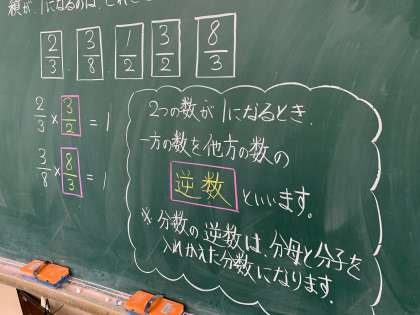 積が、1になるのは、どれと
2/3 3/8 1/2 3/2 8/3
2/3 × 3/2 = 1
3/8 × 8/3 = 1
2つの数が1になるとき、
一方の数を他方の数の
逆数 といいます。
※分数の逆数は、分母と分子を
入れかえた分数になります。